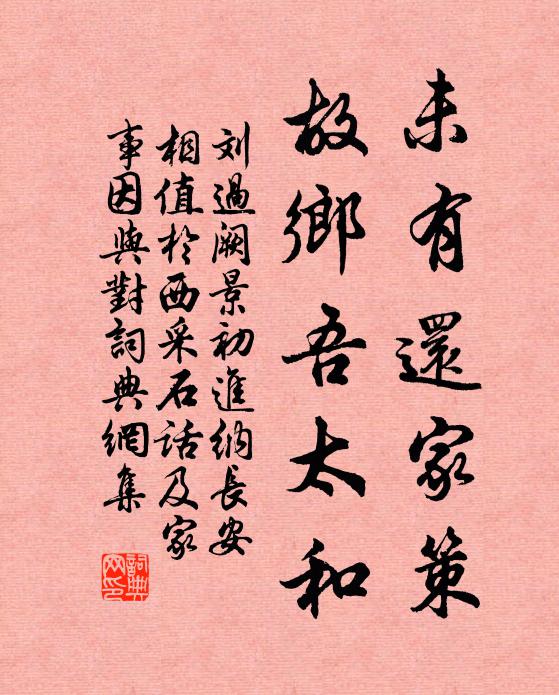 未有還家策
故鄉吾太和
刘過阙景初進納長安
相值於西采石話及家
事因與對詞典網集
詞典網印